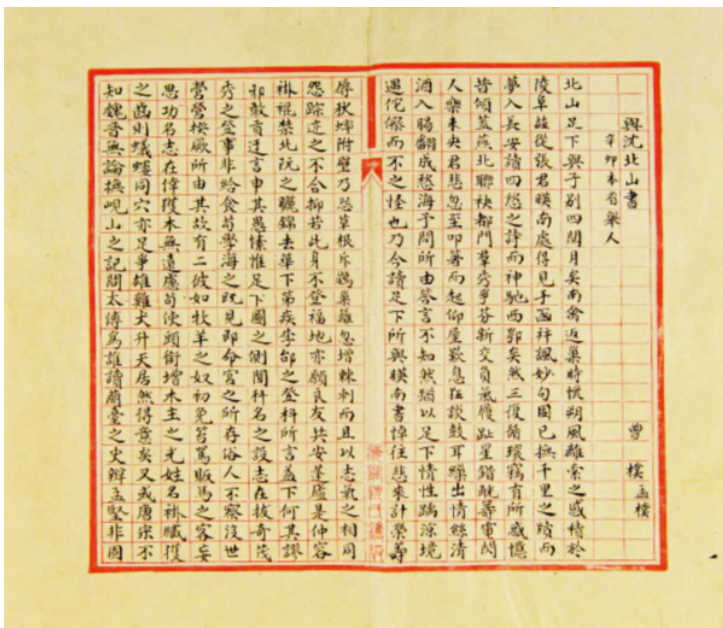 與沈北山書
辛卯本省舉人
曾樸孟樸
北山足下與子別四閱月矣南禽返巢時悵朔風離索之感積於
陵阜茲從張君暎南處得見手函并諷妙句固已撫千里之蹟而
夢入長安讀四愁之詩而神馳西鄂矣然三復循環竊有所感憶
昔傾蓋燕北聯袂都門羣秀爭芬新交負氣履趾星錯觥籌電閃
人樂未央君悲忽至叩箸而起仰屋歎息狂談鼓耳繰出情絲清
酒入腸翻成愁海予問所由答言不知然猶以足下情性踽涼境
遇侘傺而不之怪也乃今讀足下所與暎南書悼往悲來計榮
辱秋蟀附壁乃怨草根斥鷃巢籬忽增棘刺而且以志氣之相同
怨踪迹之不合抑若此身不登福地亦願良友共安蓬廬是仲容
褌褪禁北阮之曬錦去華下第疾李郃之登科所言蓋下何其謬
邪敢貢迂言申其愚愫惟足下圖之側聞科名之設志在拔奇茂
秀之登事非給食苟學海之既見即命宮之所存俗人不察沒世
營營揆厥所由其故有二彼如牧羊之奴初免笞罵販馬之客妄
思功名志在倖獲本無遠慮苟使頭銜增木主之光姓名掛
之齒則蟻螻同穴亦足爭雄雞犬升天居然得意矣又或唐宗不
知魏晉無論撫峴山之記問太傅為誰讀蘭臺之史辨孟堅非固